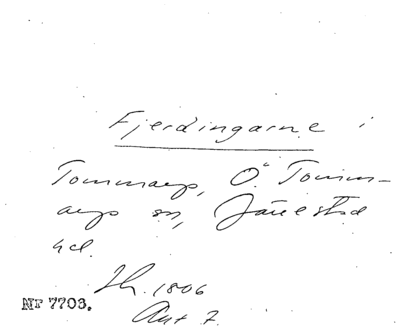 Fjerdingarne i
Tommarp, Ö. Tomm-
arps sn, Järrestad
hd.
Th. 1806
Akt 7.
Nr 7703.